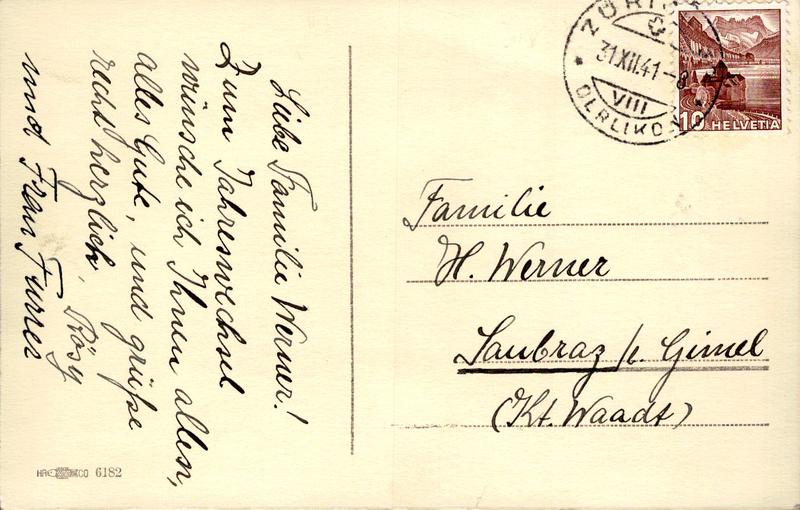 Liebe Familie Werner!
Zum Jahreswechsel
wünsche ich Ihnen allen,
alles Gute, und grüße
recht herzlich, Rösy
und Frau Furrer
ZÜRICH
31.XII.41-8
VIII
OERLIKON
10 HELVETIA
Familie
H. Werner
Saubraz /s. Gimel
(Kt. Waadt)
6182